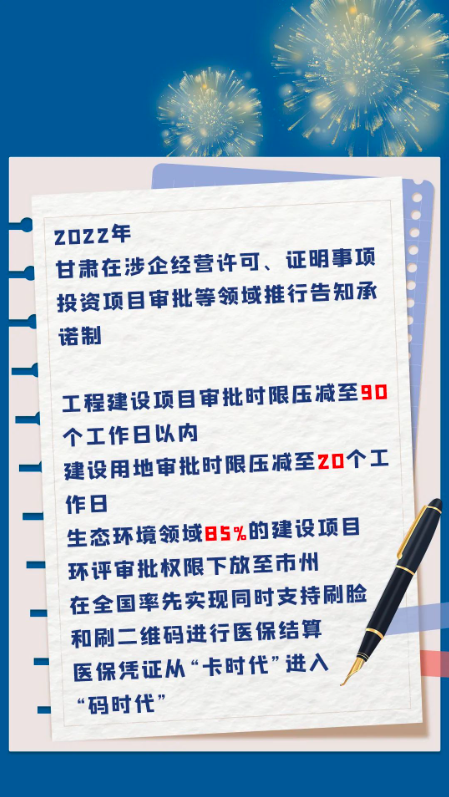 2022年
甘肃在涉企经营许可、证明事项
投资项目审批等领域推行告知承
诺制
工程建设项目审批时限压减至90
个工作日以内
建设用地审批时限压减至20个工
作日
生态环境领域85%的建设项目
环评审批权限下放至市州
在全国率先实现同时支持刷脸
和刷二维码进行医保结算
医保凭证从“卡时代”进入
“码时代”